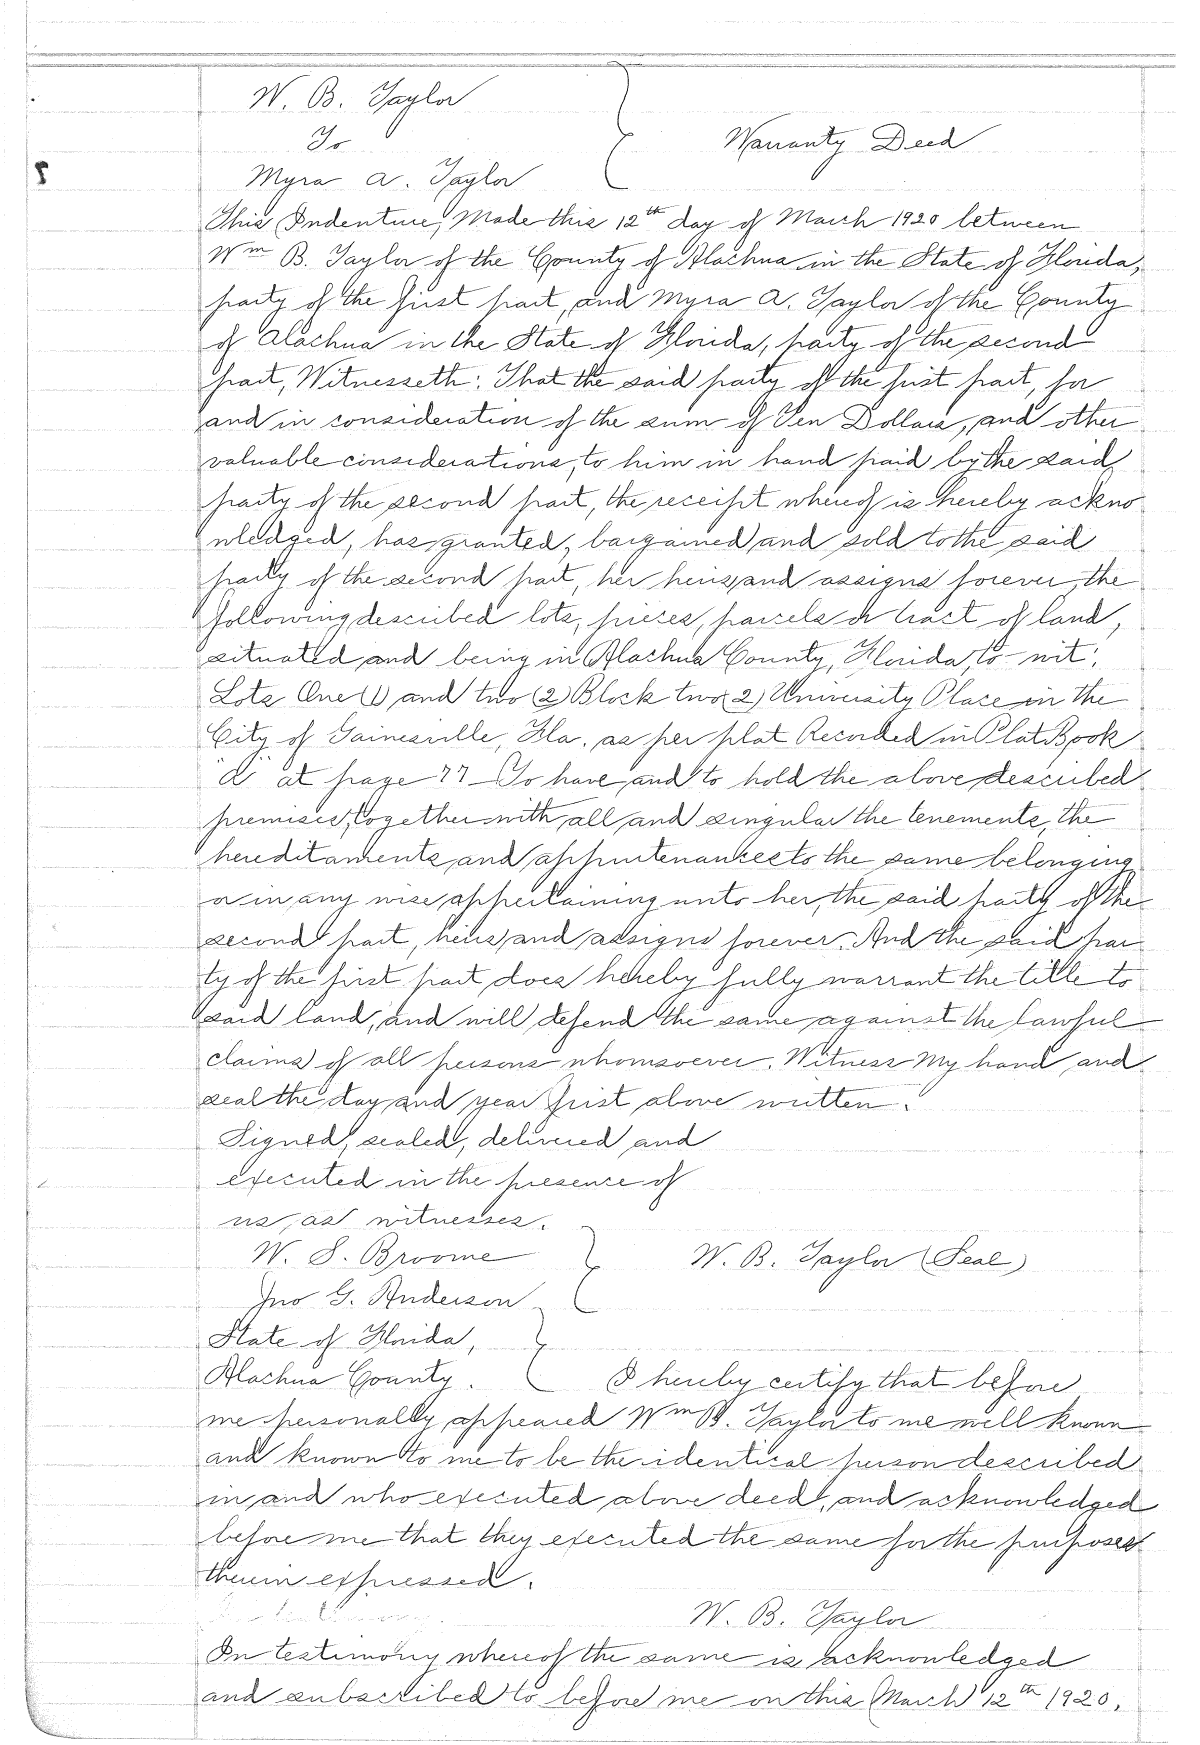 W. B. Taylor
To
Warranty Deed
Myra A. Taylor
This Indenture, Made this 12th day of March 1920 between
Wm B. Taylor of the County of Alachua in the State of Florida,
party of the first part, and Myra A. Taylor of the County
of Alachua in the State of Florida, party of the second
part, Witnesseth: That the said party of the first part, for
and in consideration of the sum of Ten Dollars, and other
valuable considerations, to him in hand paid by the said
party of the second part, the receipt whereof is hereby ackno
wledged, has granted, bargained and sold to the said
party of the second part, her heirs and assigns forever, the
following described lots, pieces, parcels or tract of land,
situated and being in Alachua County, Florida, to-wit:
Lots One (1) and two (2) Block two (2) University Place in the
City of Gainesville, Fla. as per plat Recorded in Plat Book
at page 77 To have and to hold the above described
premises, together with all and singular the tenements, the
hereditaments and appurtenances to the same belonging
or in any wise appertaining unto her, the said party of the
second part, heirs and assigns forever. And the said par
ty of the first part does hereby fully warrant the title to
said land, and will defend the same against the lawful
claims of all persons whomsoever. Witness My hand and
seal the day and year first above written.
Signed, sealed, delivered and
executed in the presence of
us, as witnesses.
W. S. Broome
W. B. Taylor (Seal)
Jno G. Anderson
State of Florida,
Alachua County. I hereby certify that before
me personally appeared Wm B. Taylor to me well known
and known to me to be the identical person described
in and who executed above deed, and acknowledged
before me that they executed the same for the purposes
therein expressed.
W. B. Taylor
In testimony whereof the same is acknowledged
and subscribed to before me on this March 12th 1920.